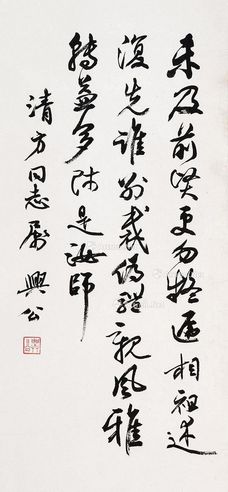 未及前贤更勿疑递相祖述
復先谁别裁伪体亲风雅
转益多师是汝师
清方同志属 兴公